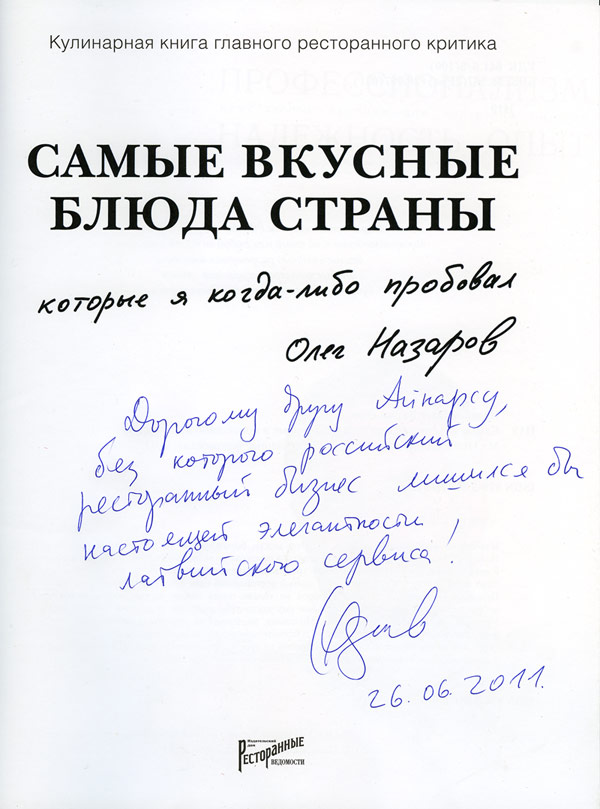 Кулинарная книга главного ресторанного критика
САМЫЕ ВКУСНЫЕ
БЛЮДА СТРАНЫ
которые я когда-либо пробовал
Олег Назаров
Дорогому другу Айнарсу,
без которого российский
ресторанный бизнес лишился бы
настоящей элегантности
латвийского сервиса!
26.06.2011.
Издательский
дом
РЕСТОРАННЫЕ
ВЕДОМОСТИ